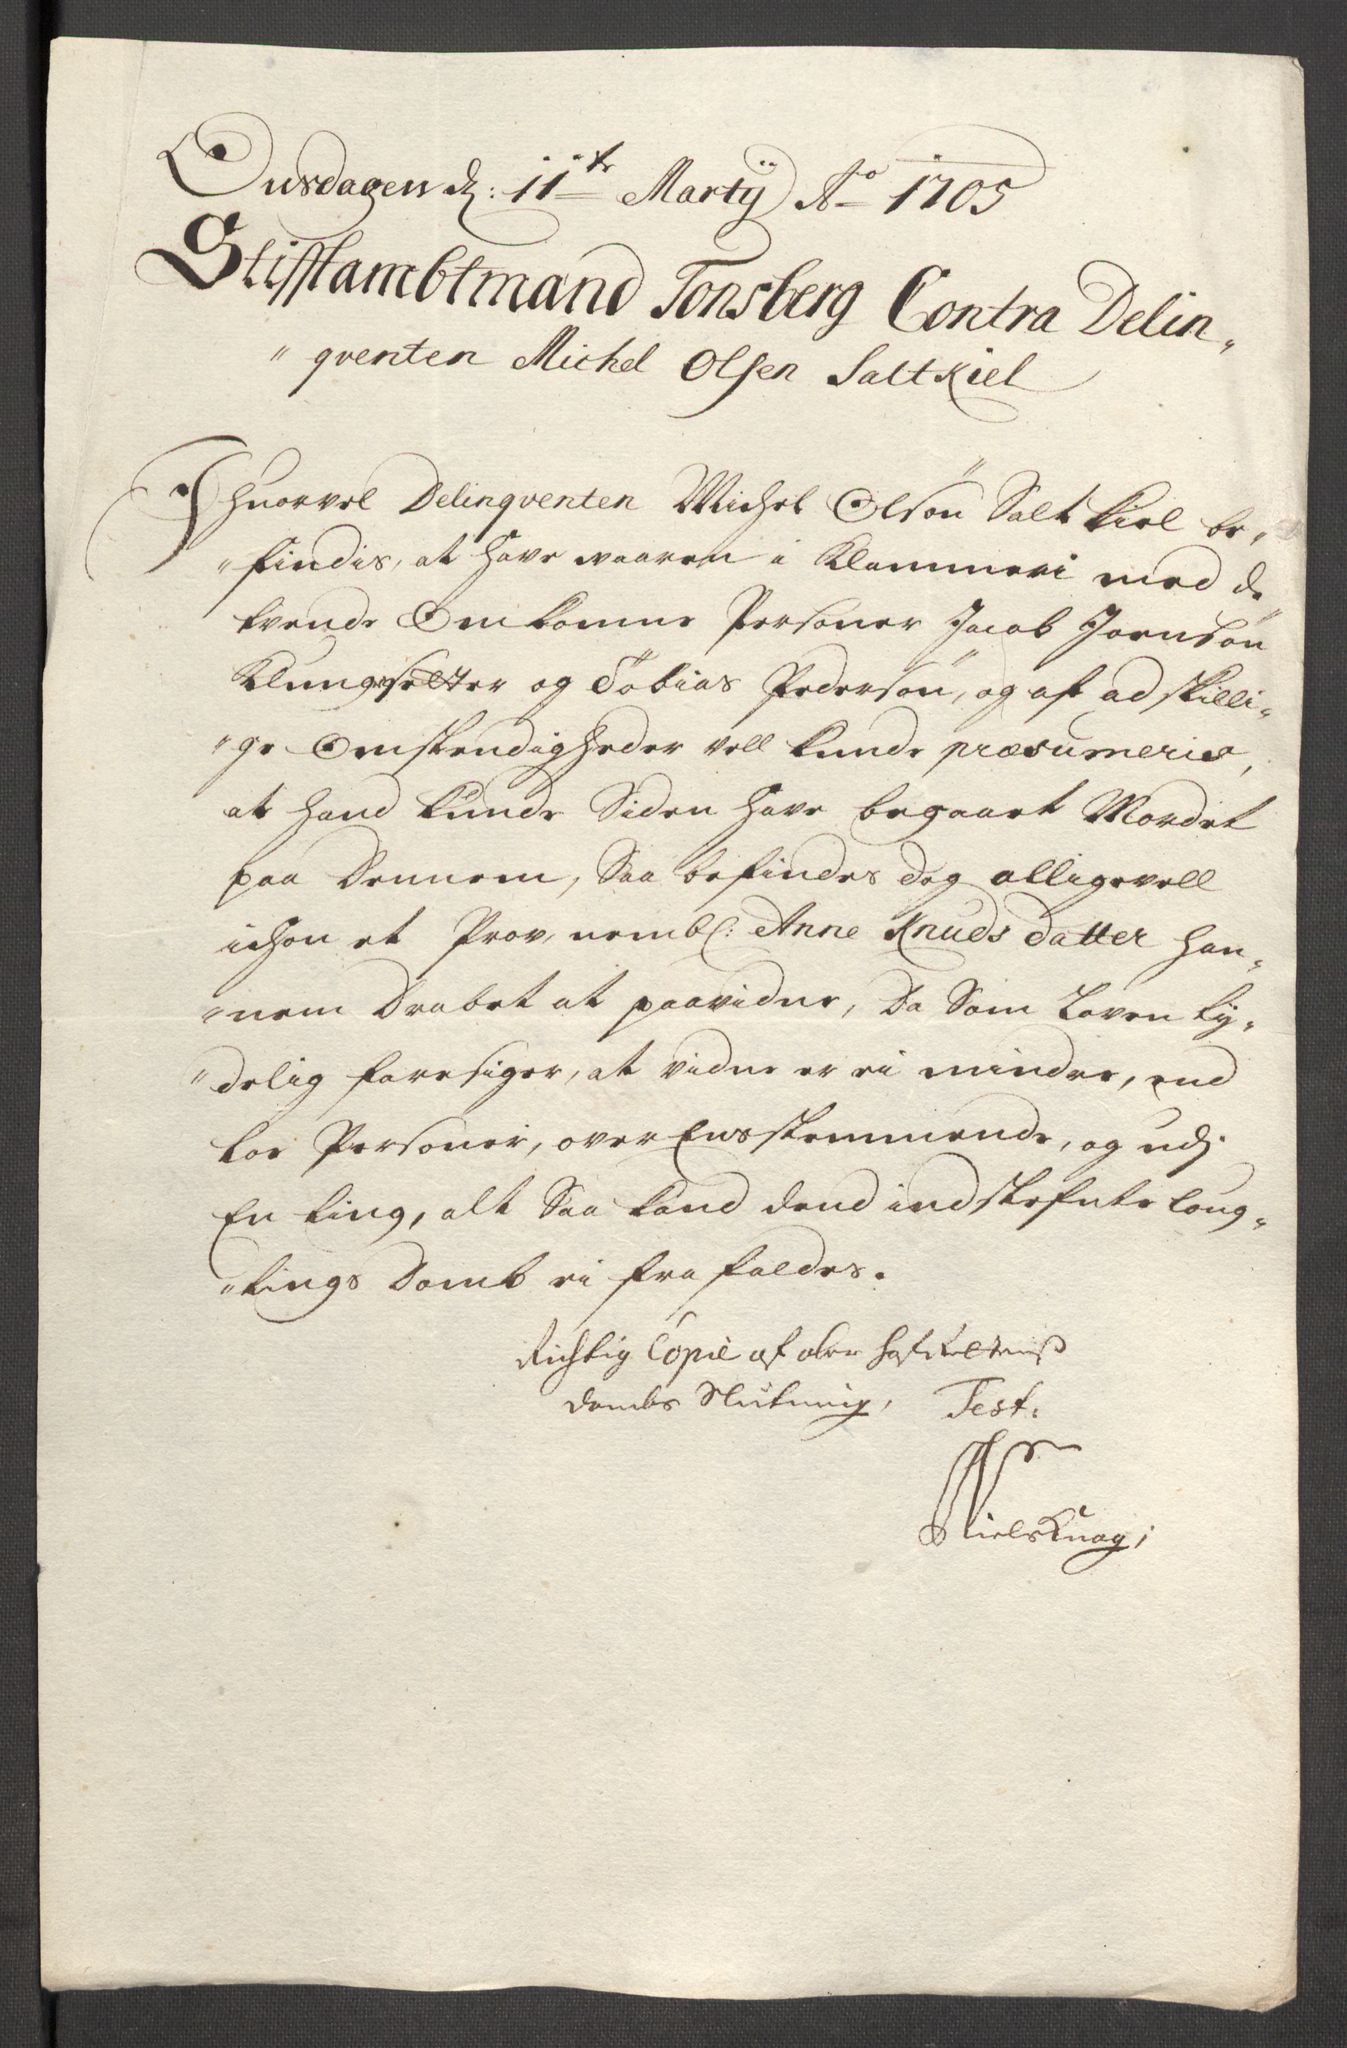 Onsdagen d: 11te Martÿ Ao 1705
Stifftambtmand Tonsberg Contra Delin„
„qventen Michel Olsen SaltKiel
Ihuorvel Delinqventen Michel Olsøn Salt Kiel be„
„findis, at have vaaren i Klammeri med de
tvende Omkomne Personer Jacob Joensøn
Klungseltter og Tobias Pedersøn, og af adskilli„
„ge Omstendigheder vell kunde præsumeris,
at hand kunde Siden have begaaet Mordet
paa Dennem, Saa befindes dog alligevell
ichon et Prov, nembl: Anne Knuds datter han„
„nem Drabet at paavidne, Da Som Loven ty„
„delig foresiger, at vidne er ei mindre, end
toe Personer, over Eensstemmende, og udj
En ting, alt Saa kand dend indstefnte loug„
„tings Domb ei fra faldes.
Richtig Copie af ober hoffrettens
dombs Slutning, Test:
Niels Knag;